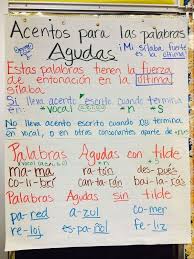 Acentos para las palabras
Agudas
¡Mi sílaba fuerte
es la última!
Estas palabras tienen la fuerza
de entonación en la última
sílaba.
Sí lleva acento escrito cuando termina
en: vocal
No lleva acento escrito cuando termina
en vocal, o en otras consonantes aparte de
Palabras Agudas con tilde
ma-má ra-tón des-pués
co-li-brí can-ta-rán bai-la-rás
Palabras Agudas sin tilde
pa-red a-zul co-mer
re-loj es-pa-ñol fe-liz